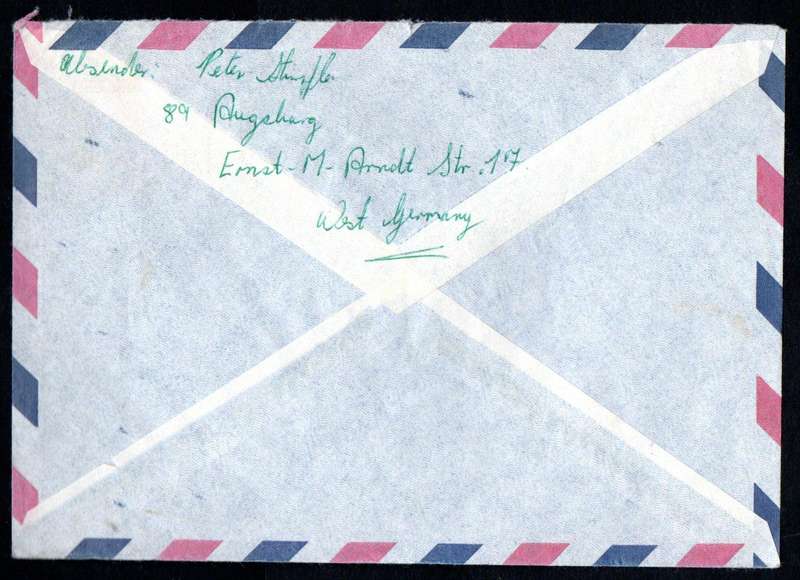 Absender: Peter
89 Augsburg
Ernst-M-Arndt Str. 17
West Germany